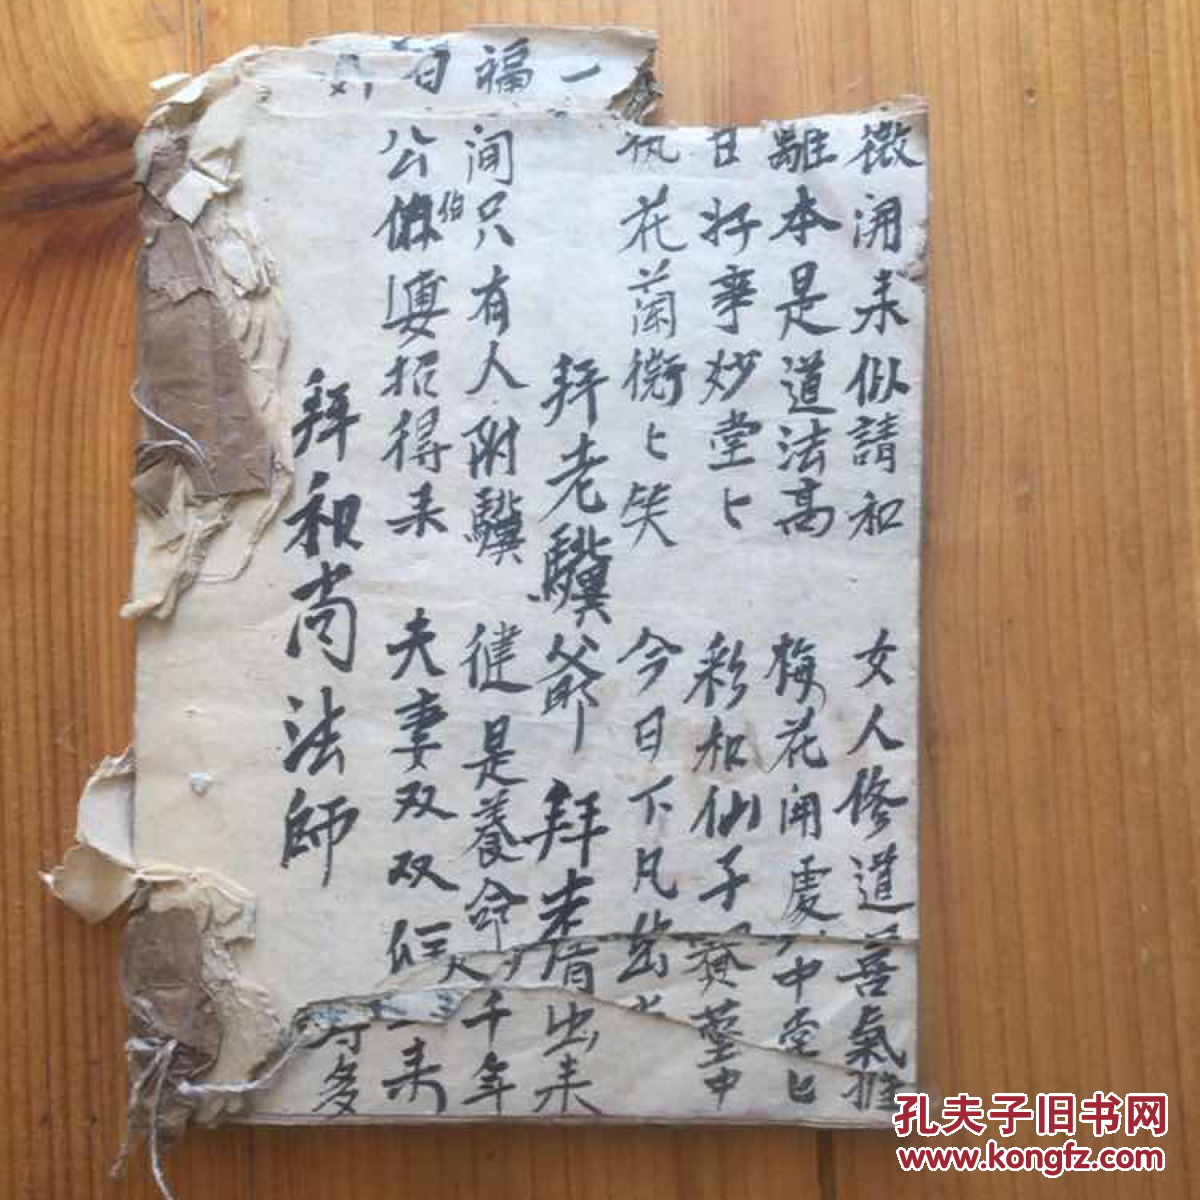 微開未似請和 女人修道善氣
離本是道法高 梅花開處中堂匕
日好事炒堂匕 彩和仙子 臺中
執花蘭 匕笑 今日下凡
拜老驥爺 拜 出来
间只有人附驥 健是養命 千年
公 伯 要招得来 夫妻双双 一来
拜和尚法師
一福
多
孔夫子旧书网
www.kongfz.com